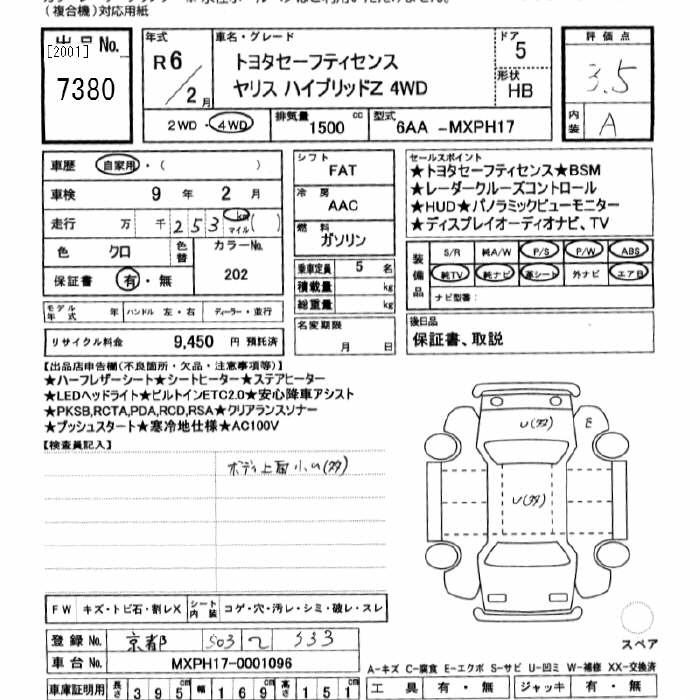 (複合機)対応用紙
出品No.
[2001]
7380
年式
R6/2月
車名・グレード
トヨタセーフティセンス
ヤリス ハイブリッドZ 4WD
ドア
5
形状
HB
評価点
3.5
内装
A
2WD・4WD
排気量 1500 cc
型式 6AA -MXPH17
車歴 自家用・( )
車検 9年 2月
走行 万 千 253 km マイル( )
色 クロ
色替
カラーNo.
202
保証書 有・無
モデル年式 年
ハンドル 左・右
ディーラー・並行
リサイクル料金 9,450 円 預託済
シフト
FAT
冷房
AAC
燃料
ガソリン
乗車定員 5 名
積載量 kg
総重量 kg
名変期限
月 日
セールスポイント
★トヨタセーフティセンス★BSM
★レーダークルーズコントロール
★HUD★パノラミックビューモニター
★ディスプレイオーディオナビ、TV
装備品
S/R 純A/W P/S P/W ABS
純TV 純ナビ 革シート 外ナビ エアB
ナビ型番:
後日品
保証書、取説
【出品店申告欄(不良箇所・欠品・注意事項等)】
★ハーフレザーシート★シートヒーター★ステアヒーター
★LEDヘッドライト★ビルトインETC2.0★安心降車アシスト
★PKSB,RCTA,PDA,RCD,RSA★クリアランスソナー
★プッシュスタート★寒冷地仕様★AC100V
【検査員記入】
ボディ上面小U(タタ)
U(タタ)
E
U(タタ)
FW キズ・トビ石・割レX
シート内装 コゲ・穴・汚レ・シミ・破レ・スレ
登録No. 京都 503 て 333
車台No. MXPH17-0001096
車庫証明用 長さ 395cm 幅 169cm 高さ 151cm
スペア
A-キズ C-腐食 E-エクボ S-サビ U-凹ミ W-補修 XX-交換済
工具 有・無
ジャッキ 有・無